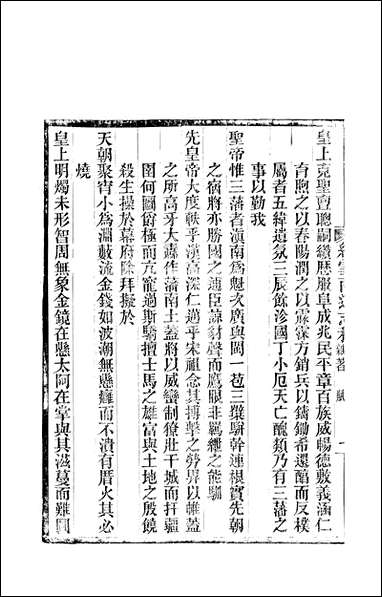 皇上堯聖亶聰嗣纘歷服阜成兆民平章百族威暢德敷義涵仁
育煦之以春陽潤之以霖霂方銷兵以鑄鋤希還醇而反樸
屬者五緯遺氛三辰餘沴國丁小厄天亡醜類乃有三藩之
事以勤我
聖帝惟三藩者滇南爲魁次廣與閩一苞三櫱駢幹連根實先朝
之宿將亦勝國之逋臣諒豺聲而鷹眼非羈紲之能馴
先皇帝大度軼乎漢高深仁邁乎宋祖念其搏擊之勞畀以帷蓋
之所高牙大纛作藩南土蓋將以威蠻制獠壯干城而扞疆
圉何圖爵極而亢寵過斯驕擅士馬之雄富與土地之殷饒
殺生操於幕府除拜擬於
天朝聚宵小為淵藪流金錢如波潮無懸癰而不潰有厝火其必
燒
皇上明燭未形智周無象金鏡在懸太阿在掌與其滋蔓而難圖